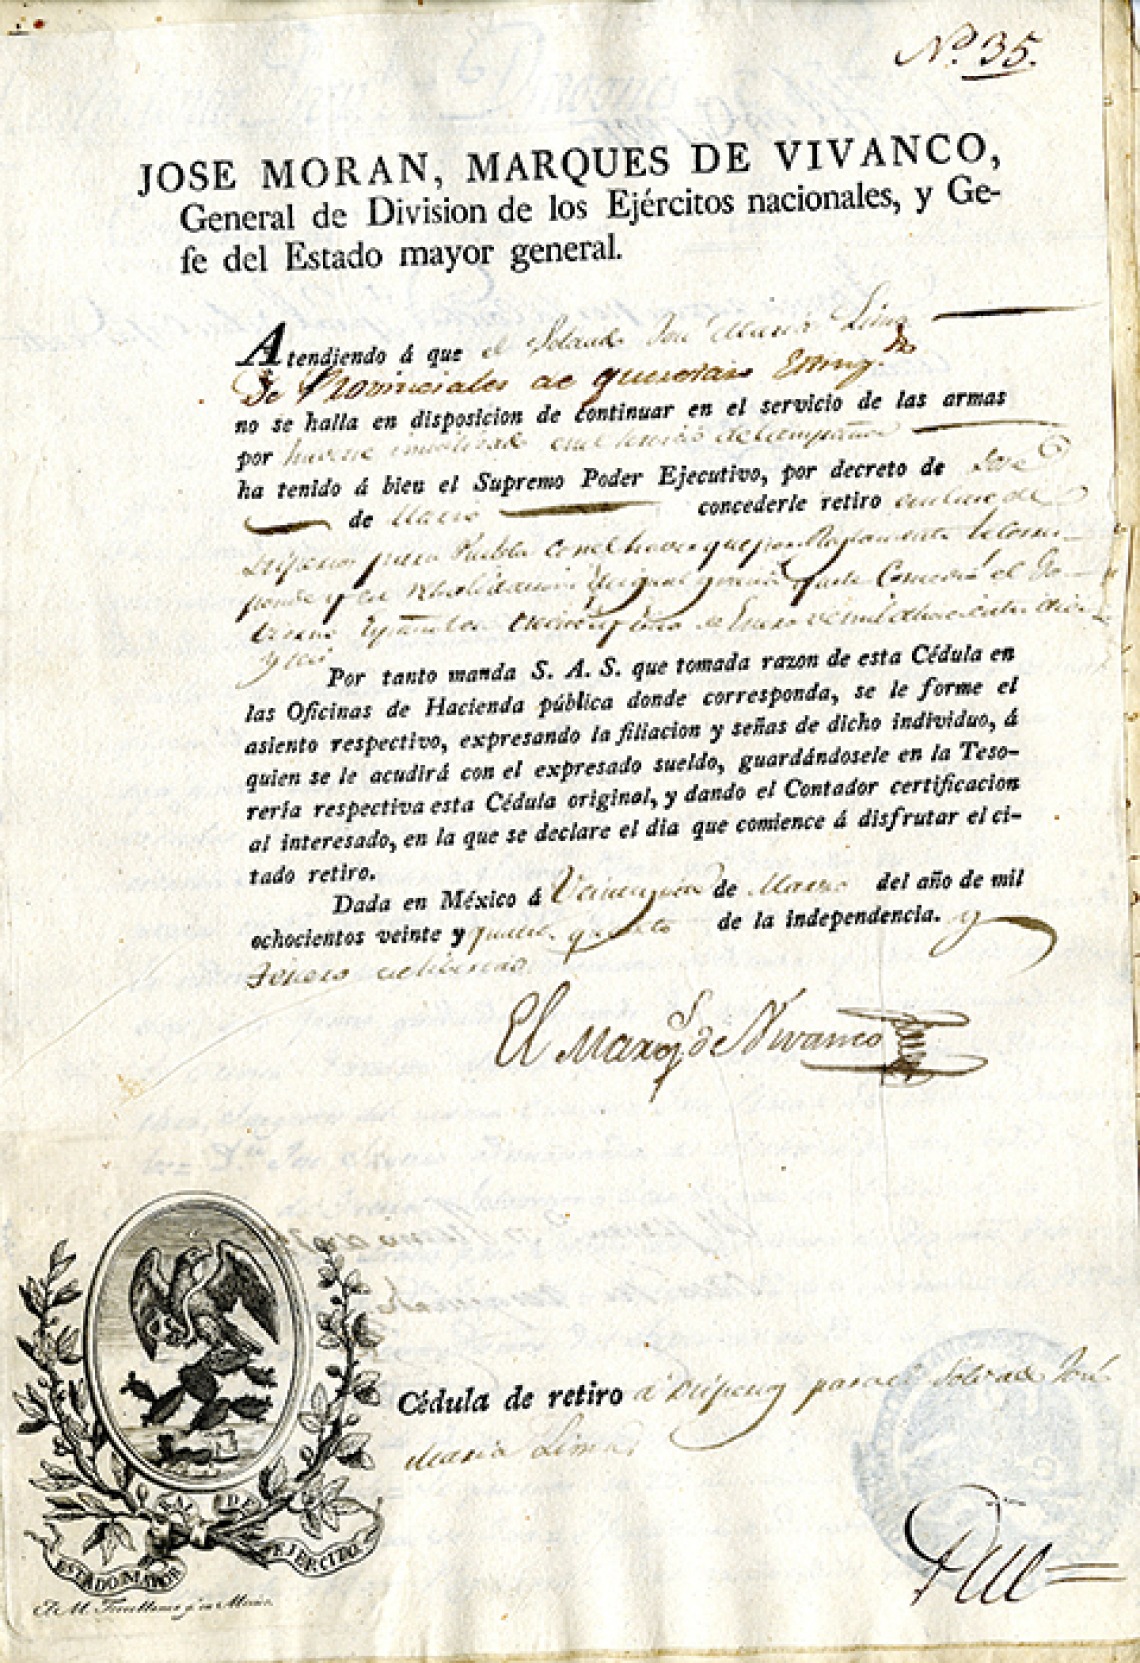 Nº 35.
JOSE MORAN, MARQUES DE VIVANCO,
General de Division de los Ejércitos nacionales, y Ge-
fe del Estado mayor general.
Atendiendo á que el Soldado José Maria Lima
De Provinciales de Queretaro
no se halla en disposicion de continuar en el servicio de las armas
por haverse inutilizado en el servicio de Campaña
ha tenido á bien el Supremo Poder Ejecutivo, por decreto de doce
de Marzo concederle retiro en clase de
para Puebla con el haver que por Reglamento le corres-
ponde y en
de Enero de mil ochocientos diez
y seis
Por tanto manda S. A. S. que tomada razon de esta Cédula en
las Oficinas de Hacienda pública donde corresponda, se le forme el
asiento respectivo, expresando la filiacion y señas de dicho individuo, á
quien se le acudirá con el expresado sueldo, guardándosele en la Teso-
rería respectiva esta Cédula original, y dando el Contador certificacion
al interesado, en la que se declare el dia que comience á disfrutar el ci-
tado retiro.
Dada en México á de Marzo del año de mil
ochocientos veinte y quatro de la independencia. y
de libertad.
El Marqs de Vivanco
Cédula de retiro á para el Soldado José
Maria Lima.
ESTADO MAYOR GRAL DE EJERCITO.